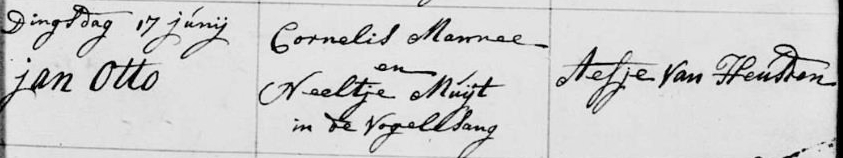 Dingsdag 17 junij
jan Otto
Cornelis Mannee
en
Neeltje Muijt
in de Vogelesang
Aefje Van Heusden